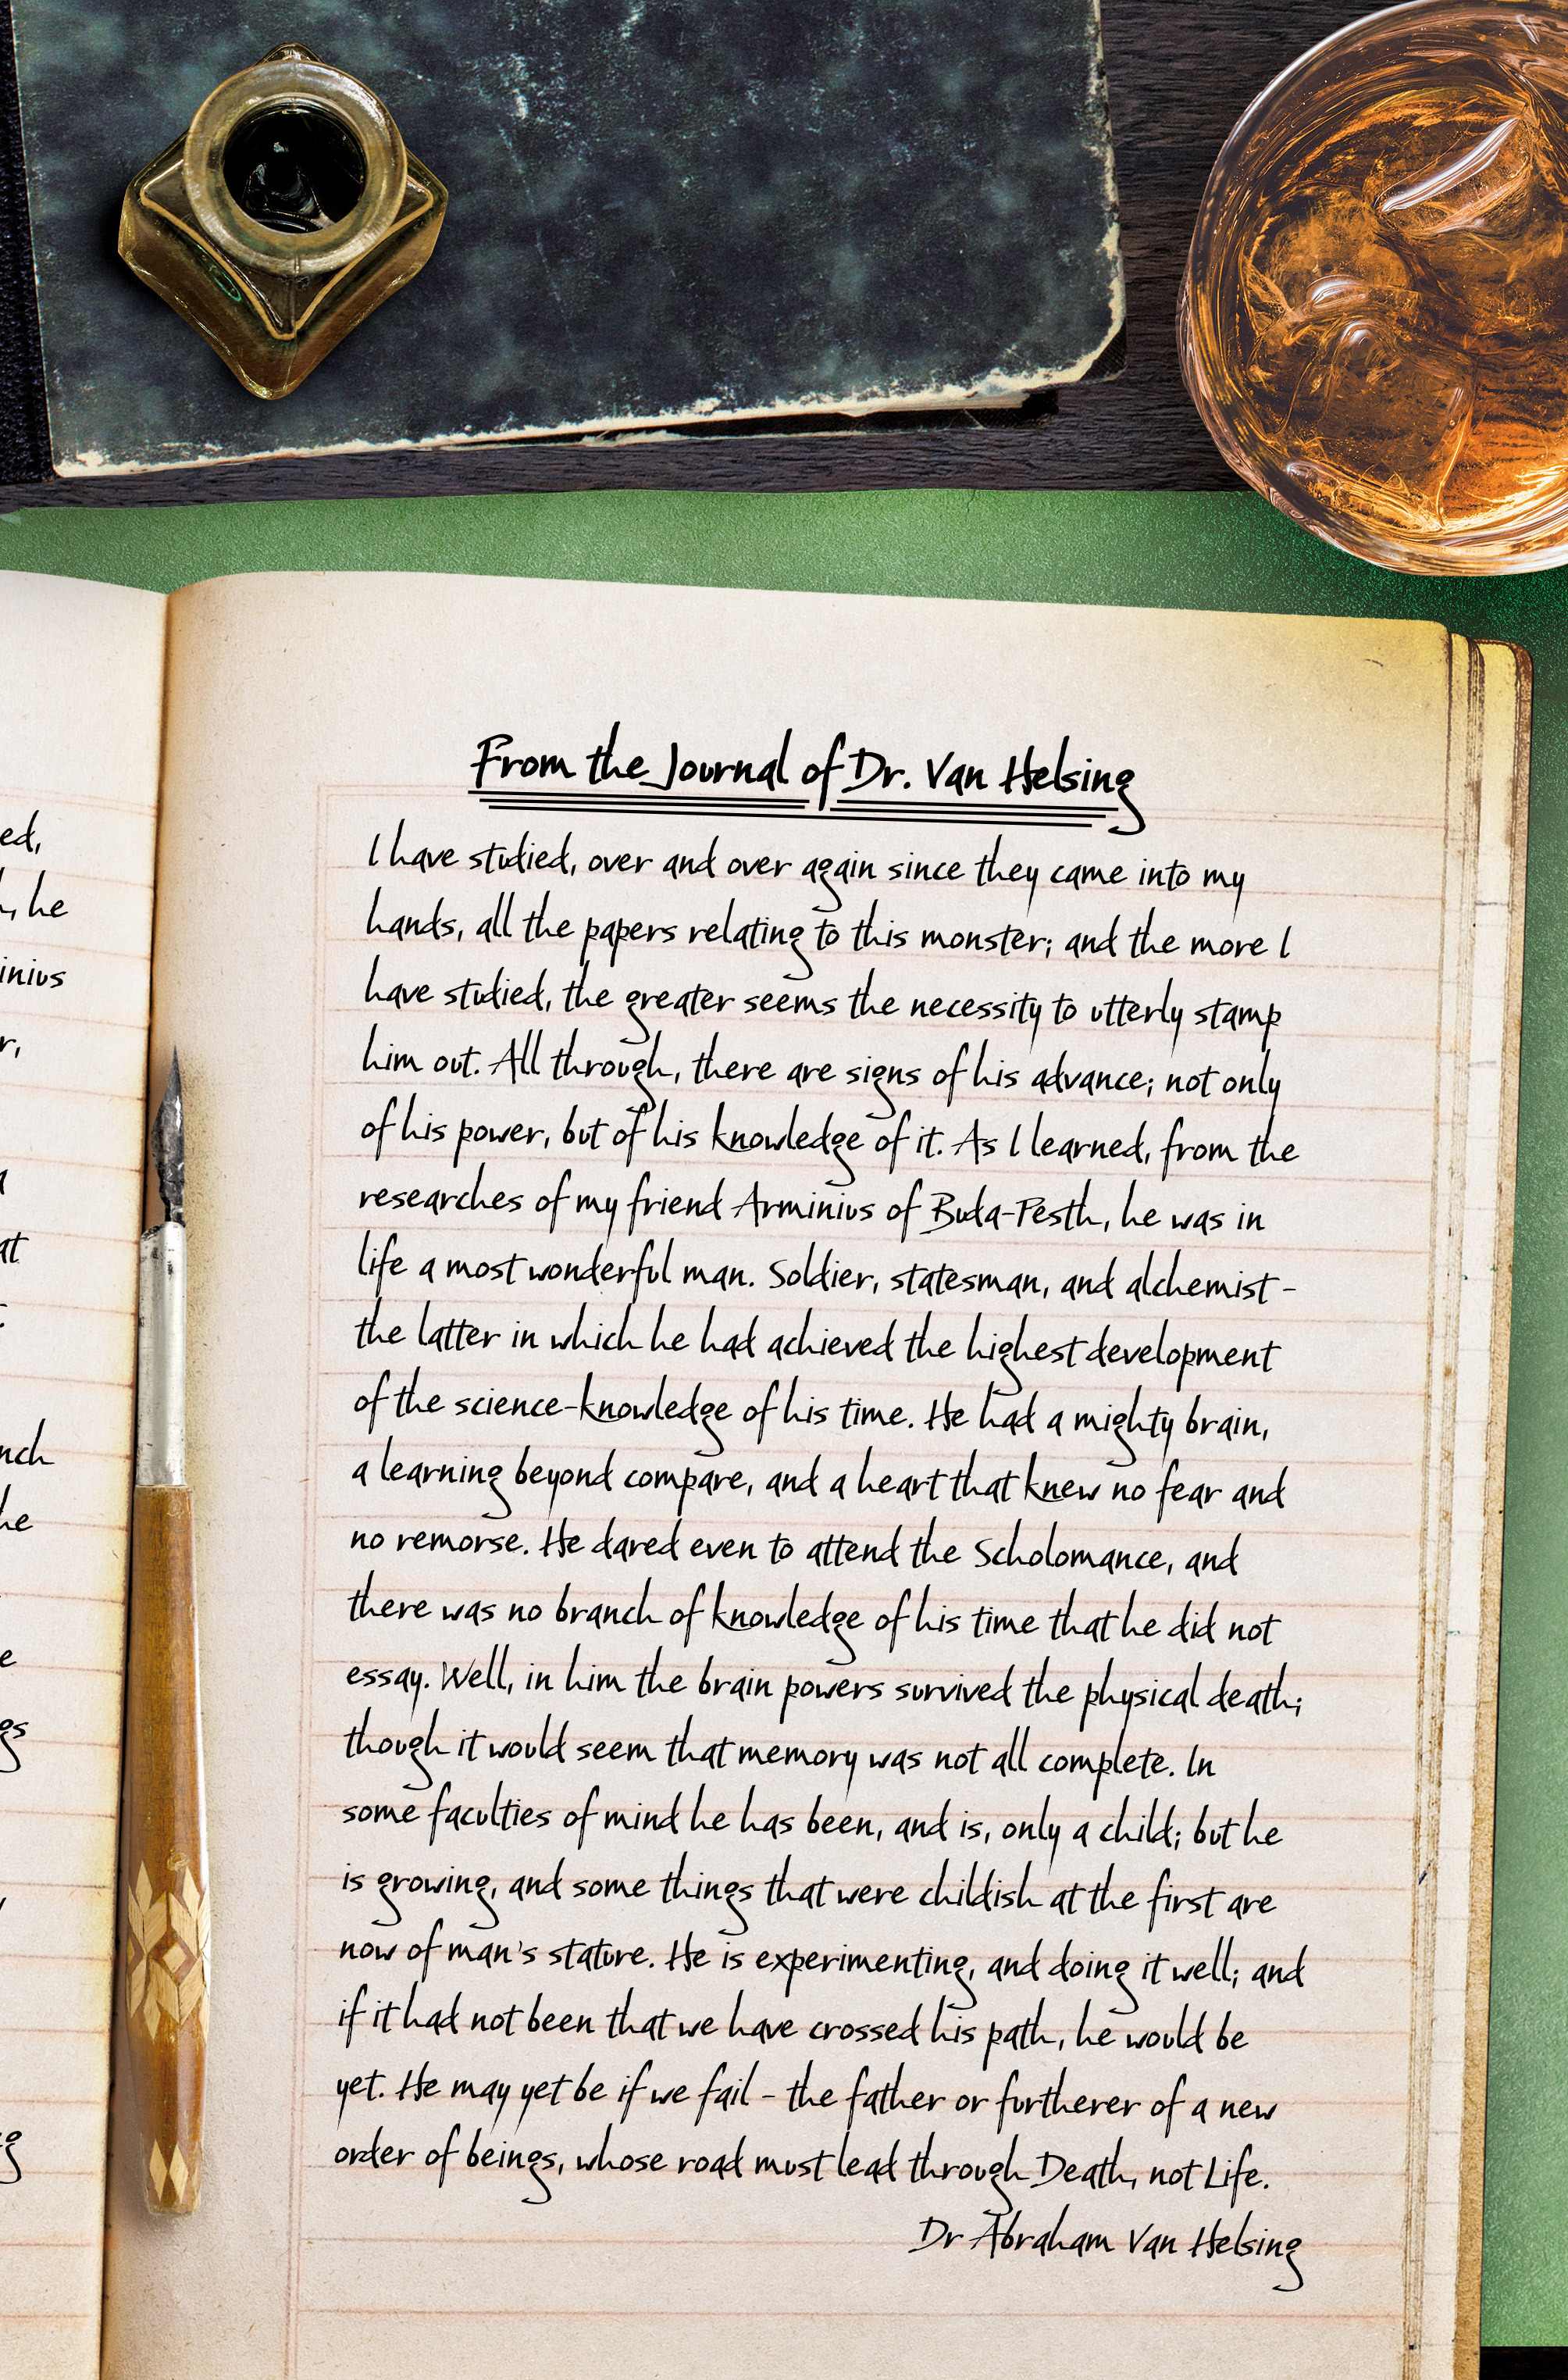 From the Journal of Dr. Van Helsing
I have studied, over and over again since they came into my
hands, all the papers relating to this monster; and the more I
have studied, the greater seems the necessity to utterly stamp
him out. All through, there are signs of his advance; not only
of his power, but of his knowledge of it. As I learned, from the
researches of my friend Arminius of Buda-Pesth, he was in
life a most wonderful man. Soldier, statesman, and alchemist -
the latter in which he had achieved the highest development
of the science-knowledge of his time. He had a mighty brain,
a learning beyond compare, and a heart that knew no fear and
no remorse. He dared even to attend the Scholomance, and
there was no branch of knowledge of his time that he did not
essay. Well, in him the brain powers survived the physical death;
though it would seem that memory was not all complete. In
some faculties of mind he has been, and is, only a child; but he
is growing, and some things that were childish at the first are
now of man's stature. He is experimenting, and doing it well; and
if it had not been that we have crossed his path, he would be
yet. He may yet be if we fail - the father or furtherer of a new
order of beings, whose road must lead through Death, not Life.
Dr Abraham Van Helsing